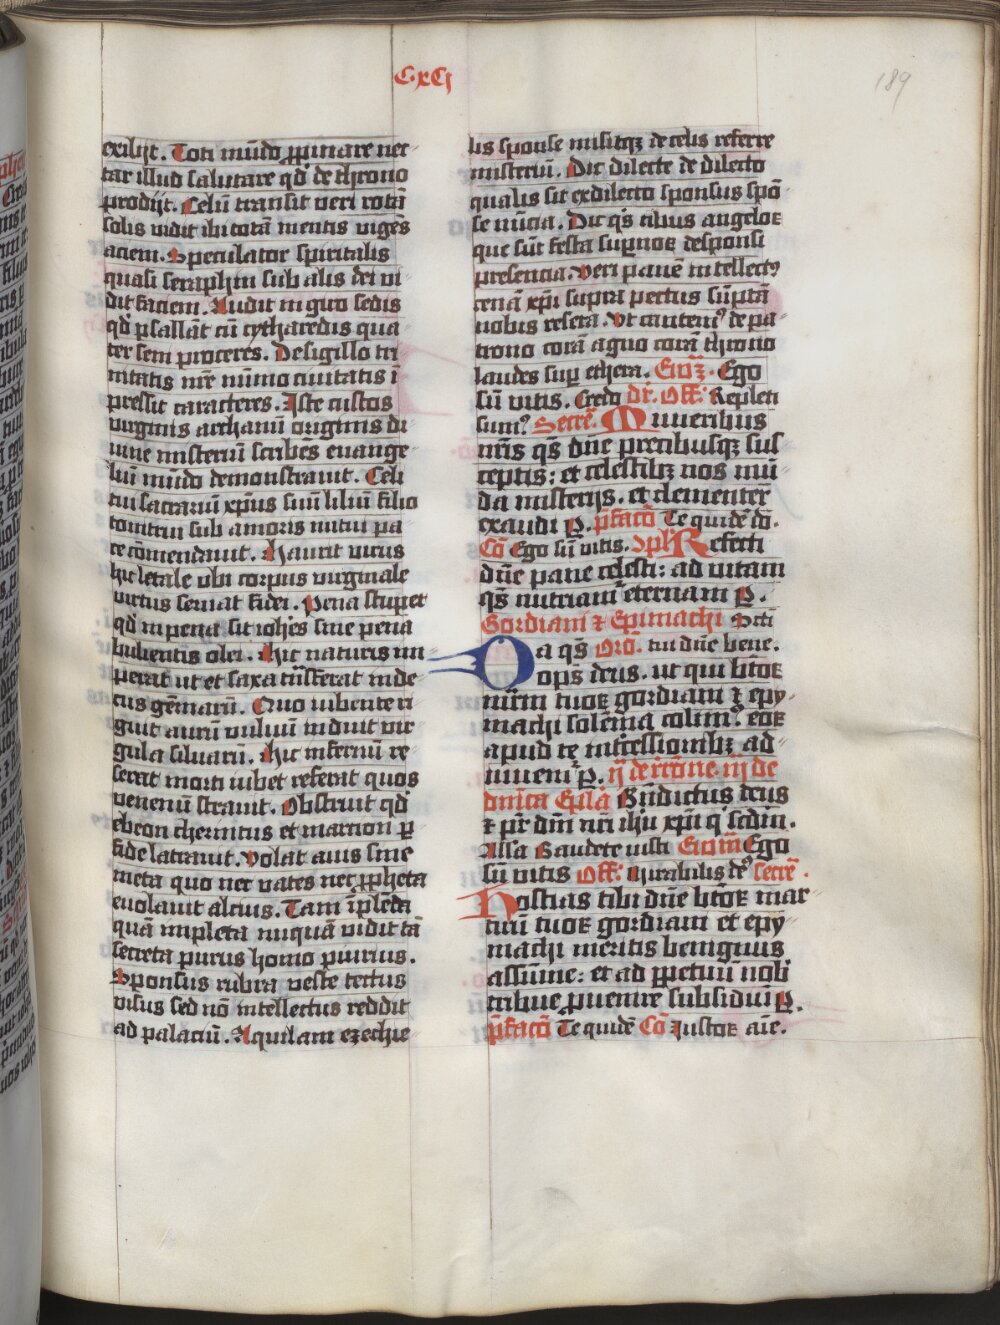 C·xCj
189
exiliit. Toti mundo ꝓpinare nec
tar illud salutare qd̄ de throno
prodijt. Celū transit veri rotā
solis vidit ibi totā mentis vigēs
aciem. Speculator spiritalis
quasi seraphin sub alis dei vi
dit faciem. Audit in giro sedis
qd̄ psallāt cū cytharedis qua
ter sem proceres. De sigillo tri
nitatis nr̄e nūmo ciuitatis ī
pressit caracteres. Iste custos
virginis archanū originis di
uine misteriū scribēs euange
liū mūdo demonstrauit. Celi
cui sacrariū xp̄us suū liliū filio
tonitrui sub amoris mutui pa
ce cōmendauit. Haurit virus
hic letale vbi corpus virginale
virtus seruat fidei. Pena stupet
qd̄ in pena sit ioh̄es sine pena
bulientis olei. Hic naturis im
perat ut et saxa trāsferat in de
cus gēmarū. Quo iubente ri
guit aurū vuluiū induit vir
gula siluarū. Hic infernū re
serat morti iubet referat quos
venenū strauit. Obstruit qd̄
ebeon cherintus et marcion ꝑ
fide latrauit. Volat auis sine
meta quo nec vates nec ꝓpheta
euolauit alcius. Tam īplēda
quā impleta nūquā vidit tā
secreta purus homo purius.
Sponsus rubra veste tectus
visus sed nō intellectus reddit
ad palaciū. Aquilam ezechie
lis sponse misitqꝫ de celis referre
misteriū. Dic dilecte de dilecto
qualis sit ex dilecto sponsus spō
se nūcia. Dic qs̄ cibus angeloꝝ
que sūt festa supnoꝝ de sponsi
presencia. Veri panē intellectꝰ
cenā xp̄i supra pectus sūptā
nobis resera. Vt cantemꝰ de pa
trono corā agno corā throno
laudes suꝑ ethera. Ego
sū vitis. Credo dr̄. Off. Repleti
sumꝰ Secre. Muneribus
nr̄is qs̄ dn̄e precibusqꝫ sus
ceptis: et celestibꝫ nos mū
da misterijs. et clementer
exaudi P. p̄facō Te quidē dō.
Cō Ego sū vitis. 9pl̄ Refecti
dn̄e pane celesti: ad vitam
qs̄ nutriam eternam P.
Gordiani ⁊ Epimachi Scti
Da qs̄ Orō. tui dn̄e bene.
ops̄ deus. ut qui btōꝝ
mr̄m tuoꝝ gordiani ⁊ epy
machi solēnia colimꝰ. eoꝝ
apud te intercessionibꝫ ad
iuuemꝰ P. ij de rr̄one. iij de
dn̄ica Epl̄a Bn̄dictus deus
⁊ pr̄ dn̄i nr̄i ihū xp̄i q̄ scdm̄.
Assa Gaudete iusti Ego
sū vitis Off. Mirabilis dē secre.
Hostias tibi dn̄e btōꝝ mar
tirū tuoꝝ gordiani et epy
machi meritis benignus
assūme: et ad ꝑpetuū nobis
tribue ꝓuenire subsidiū P.
p̄facō Te quidē Cō Iustoꝝ aīe.